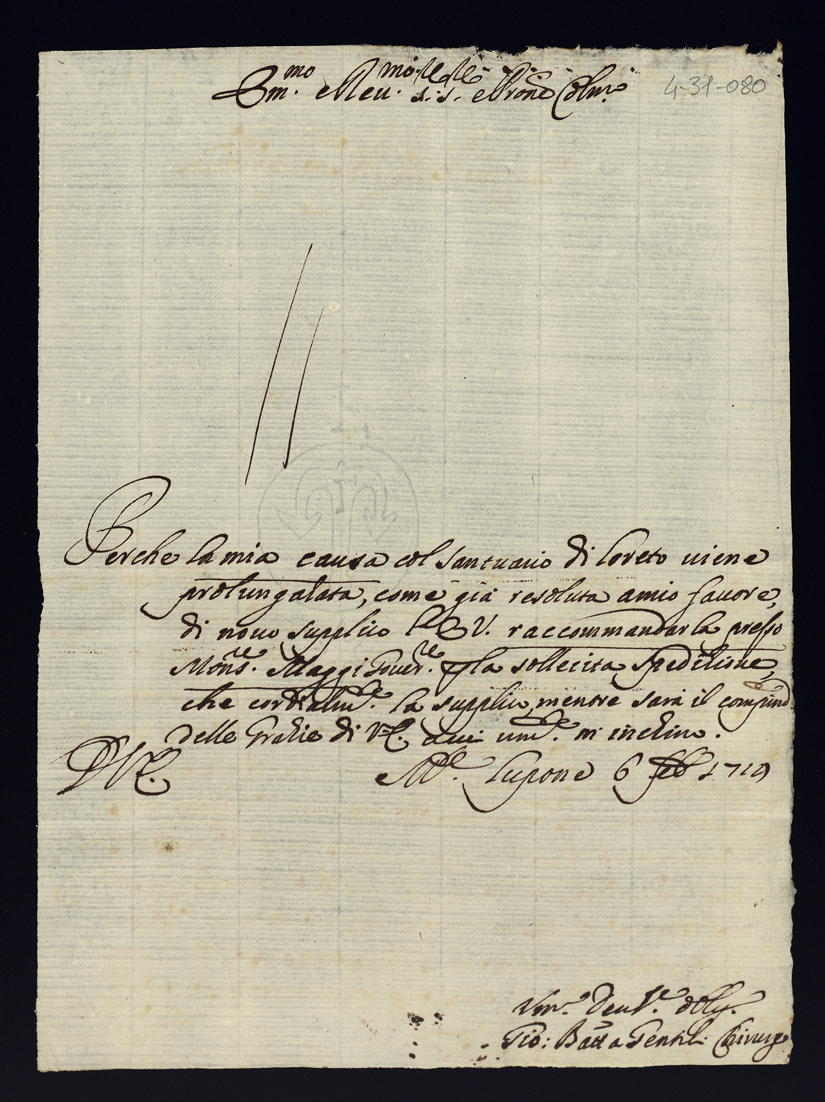 Emo e Reu.mo S.re S.re e Prone Colmo
4-31-080
Perche la mia causa col santuario di Loreto uiene
prolungatata, come già resoluta a mio fauore,
di nouo supplico l'E V. raccommandarla presso
Mons.re Maggi Gouer.re p la sollecita speditione,
che cordialm.te la supplico, mentre sarà il compim.
delle Gratie di V.E. a cui um.te m'inchino.
D V.E. Mte Lupone 6 Feb 1719
Um.o Deu.o S.re obl.
Gio: Batta Gentili Chirurgo